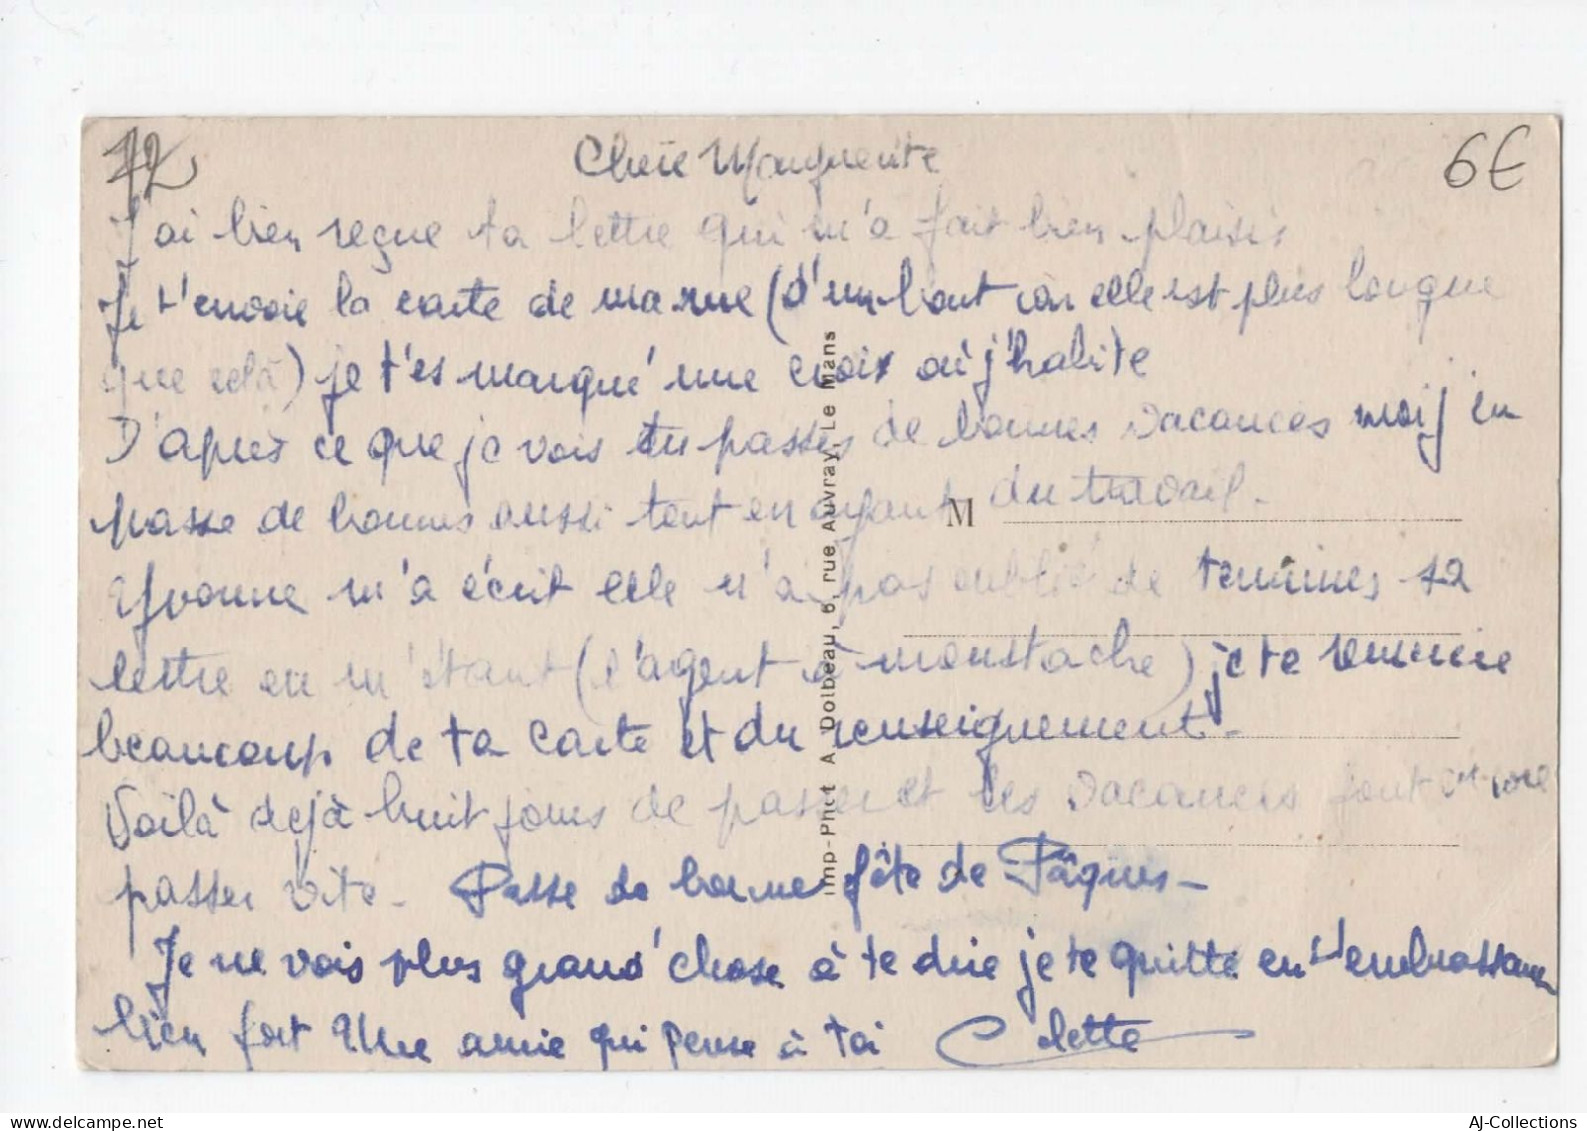 72
6€
Chère Marguerite
J'ai bien reçue ta lettre qui m'a fait bien plaisir
Je t'envoie la carte de ma rue (d'un bout car elle est plus longue
que celà) je t'es marqué une croix où j'habite
D'après ce que je vois tu passes de bonnes vacances moi j'en
passe de bonnes aussi tout en ayant du travail -
Yvonne m'a écrit elle n'a pas oublié de terminer sa
lettre en m'étant (l'agent à moustache) je te remercie
beaucoup de ta carte et du renseignement -
Voilà dejà huit jours de passer et les vacances font
passer vite - Passe de bonne fête de Pâques -
Je ne vois plus grand chose à te dire je te quitte en t'embrassant
bien fort Une amie qui pense à toi Colette
M
Imp-Phot A. Dolbeau, 6, rue Auvray, Le Mans
delcampe.net
AJ-Collections